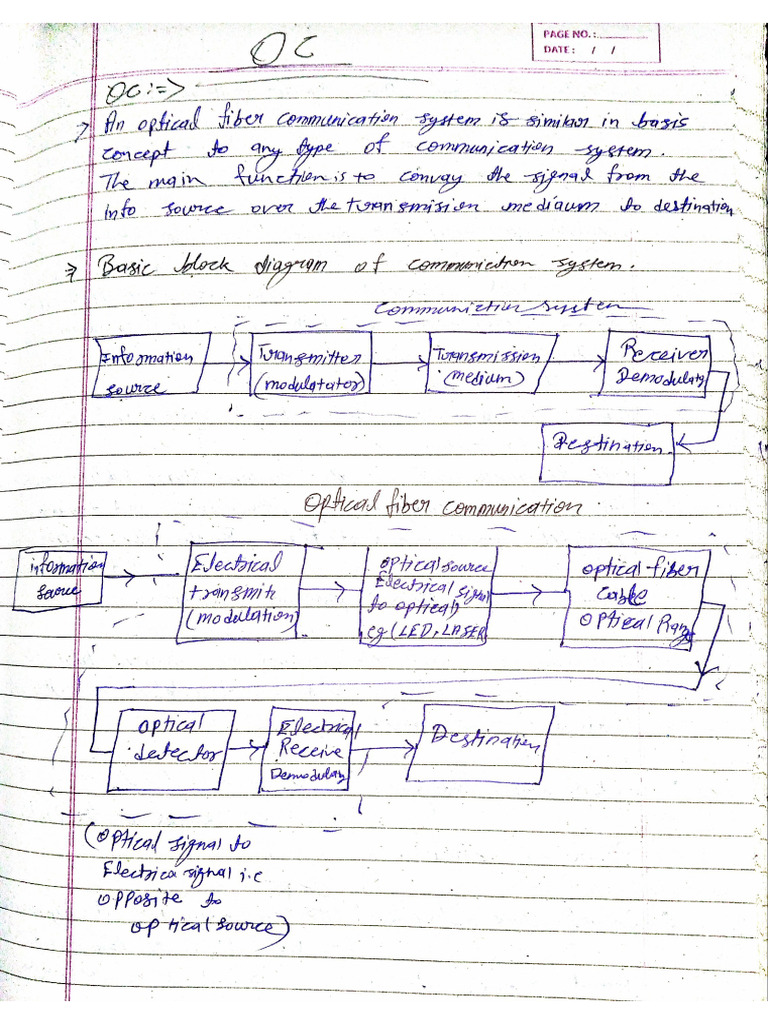 PAGE NO.:
DATE: / /
OC
OC :=>
An optical fiber communication system is similar in basis
concept to any type of communication system.
The main function is to convay the signal from the
Info source over the transmision mediaum to destination
Basic block diagram of communiction system.
Communiction system
Information
source
Transmitter
(modulatator)
Transmission
(medium)
Receiver
Demodulatg
Destination
Optical fiber communication
information
source
Electrical
transmitt
(modulation)
Optical source
Electrical signal
to optical)
eg (LED, LASER
Optical fiber
Cable
Optical Rang
Optical
detector
Electrical
Receive
Demodulatg
Destination
(Optical signal to
Electrica signal i.e
opposite to
optical source)